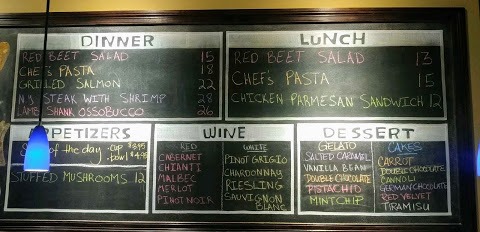 DINNER
RED BEET SALAD 15
CHEF's PASTA 18
GRILLED SALMON 22
NY STEAK WITH SHRIMP 28
LAMB SHANK OSSOBUCCO 26
LUNCH
RED BEET SALAD 13
CHEF's PASTA 15
CHICKEN PARMESAN SANDWICH 12
APPETIZERS
of the day . cup $3.95
. bowl $4.95
STUFFED MUSHROOMS 12
WINE
RED
CABERNET
CHIANTI
MALBEC
MERLOT
PINOT NOIR
WHITE
PINOT GRIGIO
CHARDONNAY
RIESLING
SAUVIGNON
BLANC
DESSERT
GELATO
SALTED CARAMEL
VANILLA BEAN
DOUBLE CHOCOLATE
PISTACHIO
MINT CHIP
CAKES
CARROT
DOUBLE CHOCOLATE
CANNOLI
GERMAN CHOCOLATE
RED VELVET
TIRAMISU